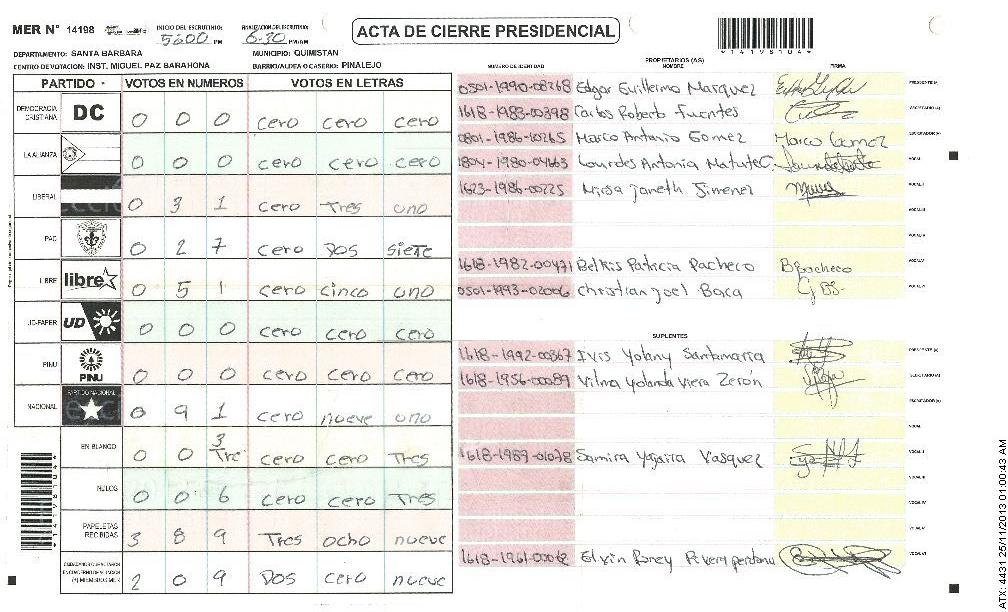 MER Nº 14198 INICIO DEL ESCRUTINIO: 5:00 PM FINALIZACION DEL ESCRUTINIO: 6:30 PM/AM
ACTA DE CIERRE PRESIDENCIAL
*14198104*
DEPARTAMENTO: SANTA BARBARA MUNICIPIO: QUIMISTAN
CENTRO DE VOTACION: INST. MIGUEL PAZ BARAHONA BARRIO/ALDEA O CASERIO: PINALEJO
PARTIDO VOTOS EN NUMEROS VOTOS EN LETRAS
DEMOCRACIA CRISTIANA DC 0 0 0 cero cero cero
LA ALIANZA 0 0 0 cero cero cero
LIBERAL 0 3 1 cero Tres uno
PAC 0 2 7 cero DOS siete
LIBRE libre 0 5 1 cero cinco uno
UD-FAPER UD 0 0 0 cero cero cero
PINU PINU 0 0 0 cero cero cero
NACIONAL PARTIDO NACIONAL 0 9 1 cero nueve uno
EN BLANCO 0 0 3 Tre cero cero Tres
NULOS 0 0 6 cero cero Tres
PAPELETAS RECIBIDAS 3 8 9 Tres ocho nueve
2 0 9 DOS cero nueve
PROPIETARIOS (AS)
NUMERO DE IDENTIDAD NOMBRE FIRMA
0501-1990-08268 Edgar Guillermo Marquez PRESIDENTE (A)
1618-1983-00398 Carlos Roberto Fuentes SECRETARIO (A)
0801-1986-10265 Marco Antonio Gomez Marco Gomez ESCRUTADOR (A)
1804-1980-04663 Lourdes Antonia Matute C. VOCAL I
1623-1986-00225 Mirsa Janeth Jimenez VOCAL II
VOCAL III
VOCAL IV
1618-1982-00471 Belkis Patricia Pacheco B Pacheco VOCAL V
0501-1993-02006 Christian Joel Baca VOCAL VI
SUPLENTES
1618-1992-00367 Ivis Yolany Santamaria PRESIDENTE (A)
1618-1956-00089 Vilma Yolanda Viera Zerón SECRETARIO (A)
ESCRUTADOR (A)
VOCAL I
1618-1989-01078 Samira Yajaira Vasquez VOCAL II
VOCAL III
VOCAL IV
VOCAL V
1618-1961-00062 Elvin VOCAL VI
ATX: 4431 25/11/2013 01:00:43 AM